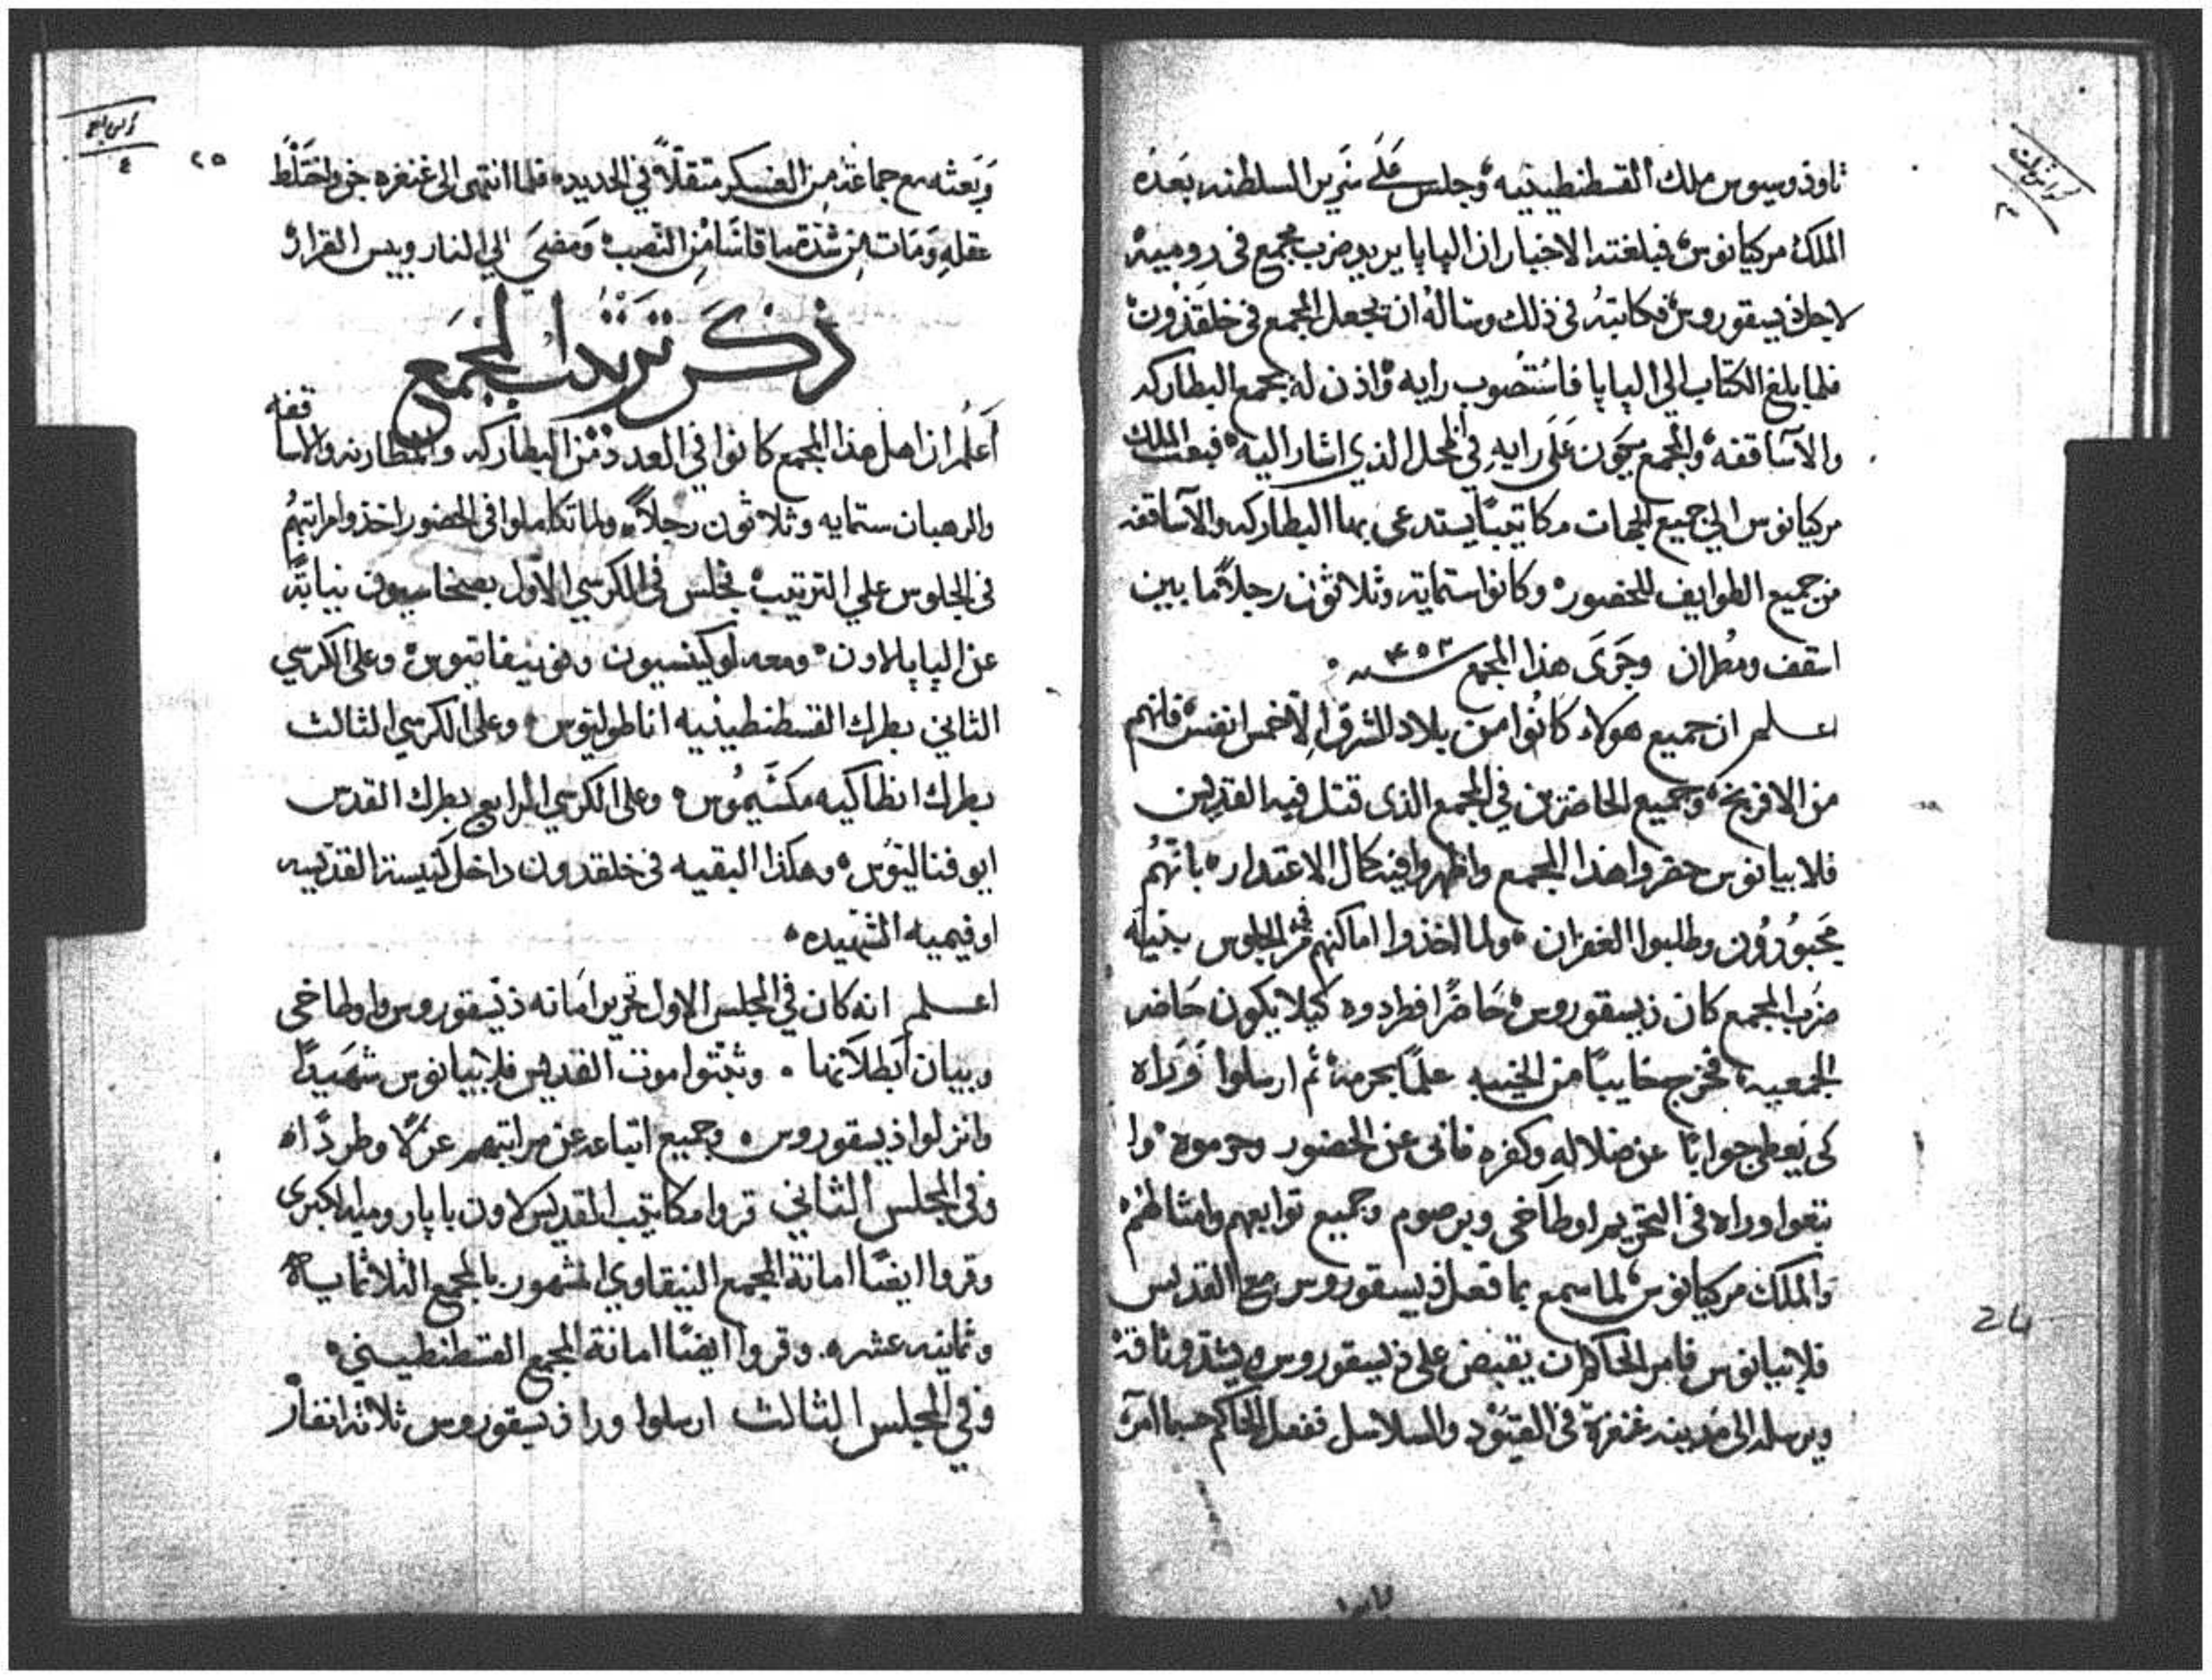 ثاوذوسيوس ملك القسطنطينيه وجلس علي سرير السلطنه بعده
الملك مركيانوس فبلغته الاخبار ان الپاپا يريد ضرب مجمع في روميه
لاجل ذيسقوروس فكاتبه في ذلك وساله ان يجعل المجمع في خلقذون
فلما بلغ الكتاب الي الپاپا فاستصوب رايه واذن له بجمع البطاركه
والاساقفه والمجمع يكون علي رايه في المحل الذي اشار اليه فبعث الملك
مركيانوس الي جميع الجهات مكاتيبًا يستدعي بها البطاركه والاساقفه
من جميع الطوايف للحضور وكانوا ستمايه وثلاثون رجلاً ما بين
اسقف ومطران وجري هذا المجمع سنه ٤٥٣
اعلم ان جميع هولاء كانوا من بلاد الشرق الا خمس انفس فانهم
من الافرنج وجميع الحاضرين في المجمع الذي قتل فيه القديس
فلابيانوس حقروا هذا المجمع واظهروا فيه كمال الاعتدار بانهم
مجبورون وطلبوا الغفران ولما اخذوا اماكنهم في الجلوس بنية
ضرب المجمع كان ذيسقوروس حاضرًا فطردوه كيلا يكون حاضر
الجمعيه فخرج خايبًا من الخيبه علمًا بحرمه ثم ارسلوا وراه
كي يعطي جوابًا عن ضلاله وكفره فابي عن الحضور وحرموه وا
تبعوا وراه في التحريم اوطاخي وبرصوم وجميع توابعهم وامثالهم
والملك مركيانوس لما سمع بما فعل ذيسقوروس مع القديس
فلابيانوس فامر الحاكم ان يقبض علي ذيسقوروس ويشد وثاقه
ويرسله الي مدينه غنغرة في القيود والسلاسل ففعل الحاكم حسبما امره
24
٢٥
وبعثه مع جماعة من العسكر متقلاً في الحديد فلما انتهي الي غنغره جن واختلط
عقله ومات من شدة ما قاسا من التعب ومضي الي النار وبيس القرار
ذكر ترتيب المجمع
اعلم ان اهل هذا المجمع كانوا في العدد من البطاركه والمطارنه والاساقفه
والرهبان ستمايه وثلاثون رجلاً ولما تكاملوا في الحضور اخذوا مراتبهم
في الجلوس علي الترتيب فجلس في الكرسي الاول بصخاسيون نيابةً
عن الپاپا لاون ومعه لوكينسيون وبونيفاتيوس وعلي الكرسي
الثاني بطرك القسطنطينيه اناطوليوس وعلي الكرسي الثالث
بطرك انطاكيه مكسيموس وعلي الكرسي الرابع بطرك القدس
ايوفناليوس وهكذا البقيه في خلقدون داخل كنيسة القديسه
اوفيميه الشهيده
اعلم انه كان في المجلس الاول تحرير امانه ذيسقوروس واوطاخي
وبيان ابطلانها وثبتوا موت القديس فلابيانوس شهيدًا
وانزلوا ذيسقوروس وجميع اتباعه عن مراتبهم عزلاً وطردًا
وفي المجلس الثاني قروا مكاتيب القديس لاون پاپا روميه الكبري
وقروا ايضًا امانة المجمع النيقاوي المشهور بالمجمع الثلاثمايه
وثمانيه عشره وقروا ايضًا امانة المجمع القسطنطيني
وفي المجلس الثالث ارسلوا ورا ذيسقوروس ثلاثة انفار